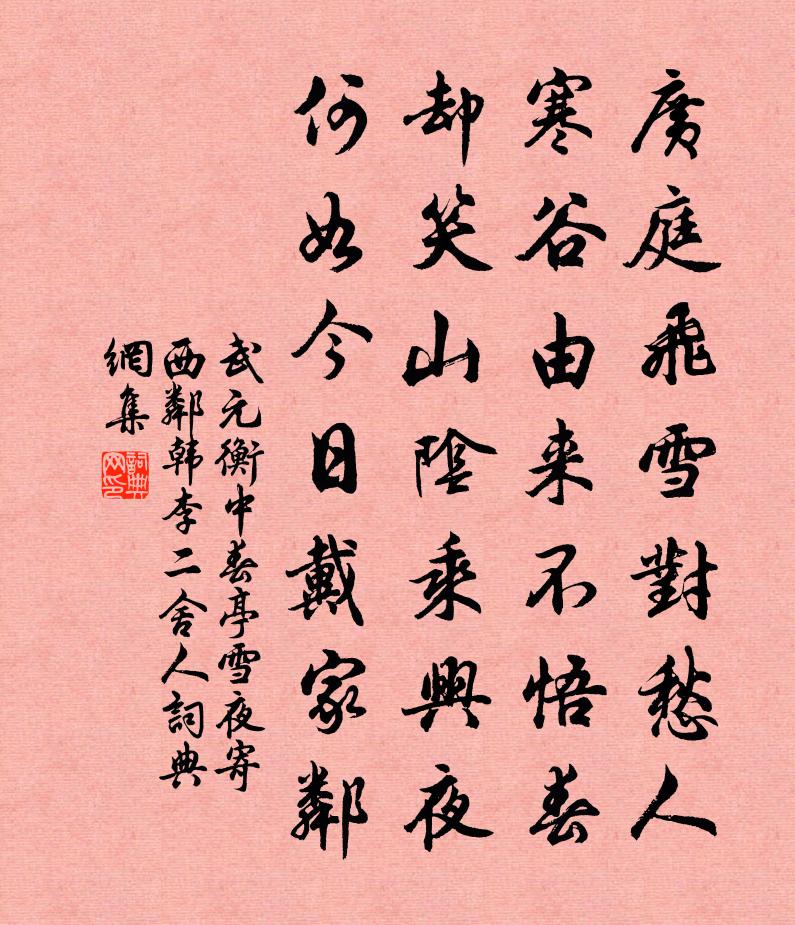 廣庭飛雪對愁人
寒谷由来不悟春
却笑山陰乘興夜
何如今日戴家鄰
武元衡中春亭雪夜寄
西鄰韩李二舍人詞典
網集
詞典
网印